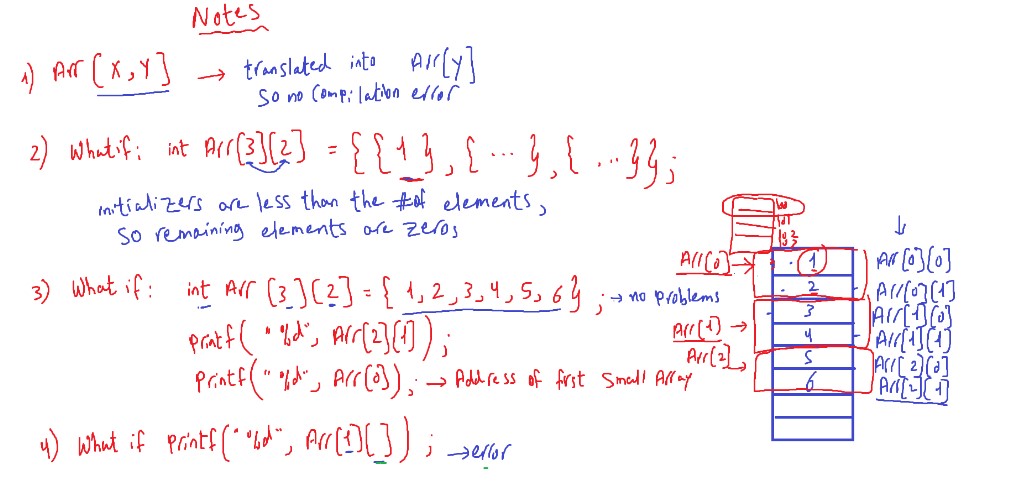 Notes
1) Arr [X,Y] → translated into Arr[y]
So no Compilation error
2) What if: int Arr[3][2] = { { 1 }, { ... }, { ... } };
initializers are less than the # of elements,
So remaining elements are zeros
3) What if: int Arr [3][2] = { 1, 2, 3, 4, 5, 6 } ; → no problems
printf( "%d", Arr[2][1] );
printf( "%d", Arr[0] ); → Address of first Small Array
4) What if printf( "%d", Arr[1][ ] ) ; → error
↓
Arr[0] → 1 Arr[0][0]
2 Arr[0][1]
Arr[1] → 3 Arr[1][0]
4 Arr[1][1]
Arr[2] → 5 Arr[2][0]
6 Arr[2][1]